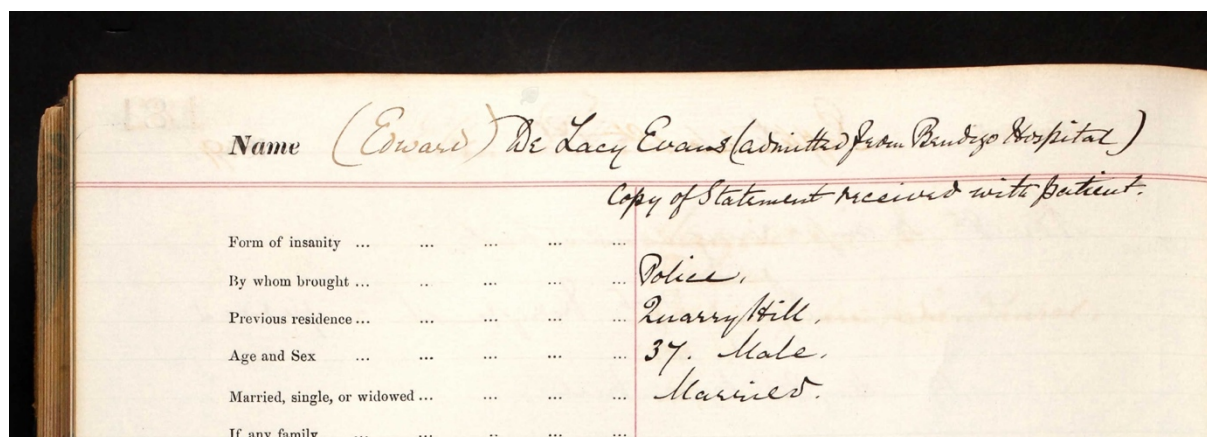 Name (Edward) De Lacy Evans (admitted from Bendigo Hospital)
Copy of Statement received with patient.
Form of insanity ... ... ... ... ...
By whom brought ... .. ... ... ... Police.
Previous residence ... ... ... ... ... Quarry Hill.
Age and Sex ... ... ... ... ... 37. Male.
Married, single, or widowed ... ... ... ... Married.
If any family ... ... .. ... ...